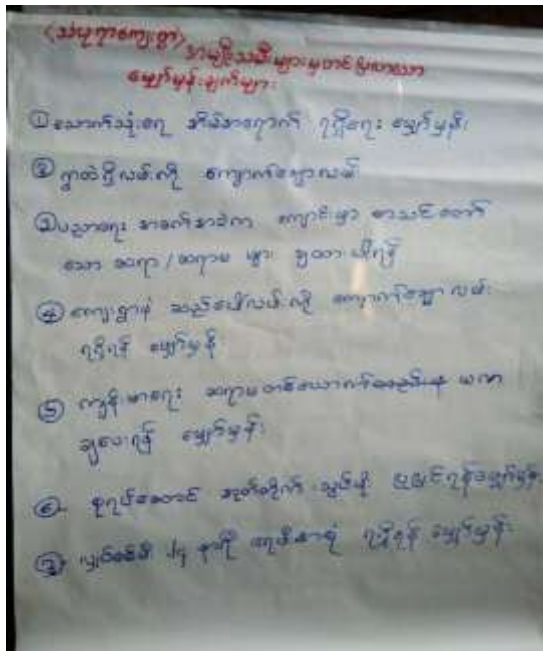 (သံပုရာကျေးရွာ) အမျိုးသမီးများမှတင်ပြလာသော
မျှော်မှန်းချက်များ
① သောက်သုံးရေ အိမ်အရောက် ရရှိရေး မျှော်မှန်း
② ရွာထဲရှိလမ်းကို ကျောက်ချောလမ်း
③ ပညာရေး အခက်အခဲက ကျောင်းမှာ စာသင်တော်
သော ဆရာ/ဆရာမ များ ချထားပေးရန်
④ ကျေးရွာနှံ့ ဆည်ပေါ်လမ်းကို ကျောက်ချောလမ်း
ရရှိရန် မျှော်မှန်း
⑤ ကျန်းမာရေး ဆရာမတစ်ယောက်
ချပေးရန် မျှော်မှန်း
⑥ စုရပ်ဆောင် အုတ်တိုက် ပြုပြင်ရန်မျှော်မှန်း
⑦ လျှပ်စစ်မီး ၂၄ နာရီ ရရှိရန် မျှော်မှန်း